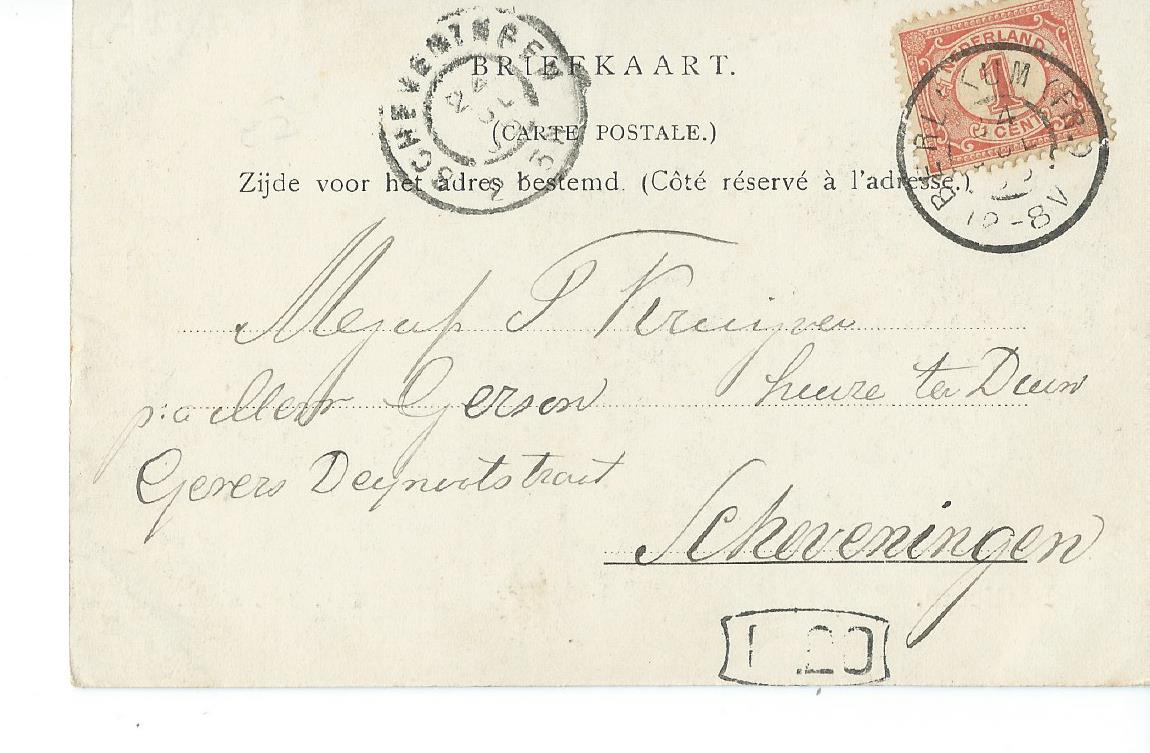 BRIEFKAART.
(CARTE POSTALE.)
Zijde voor het adres bestemd. (Côté réservé à l'adresse.)
SCHEVENINGEN
NEDERLAND
1
CENT
12-8V
Mejuf P Kruijver
p.a Gerson
huize ter Duin
Gevers Deynootstraat
Scheveningen